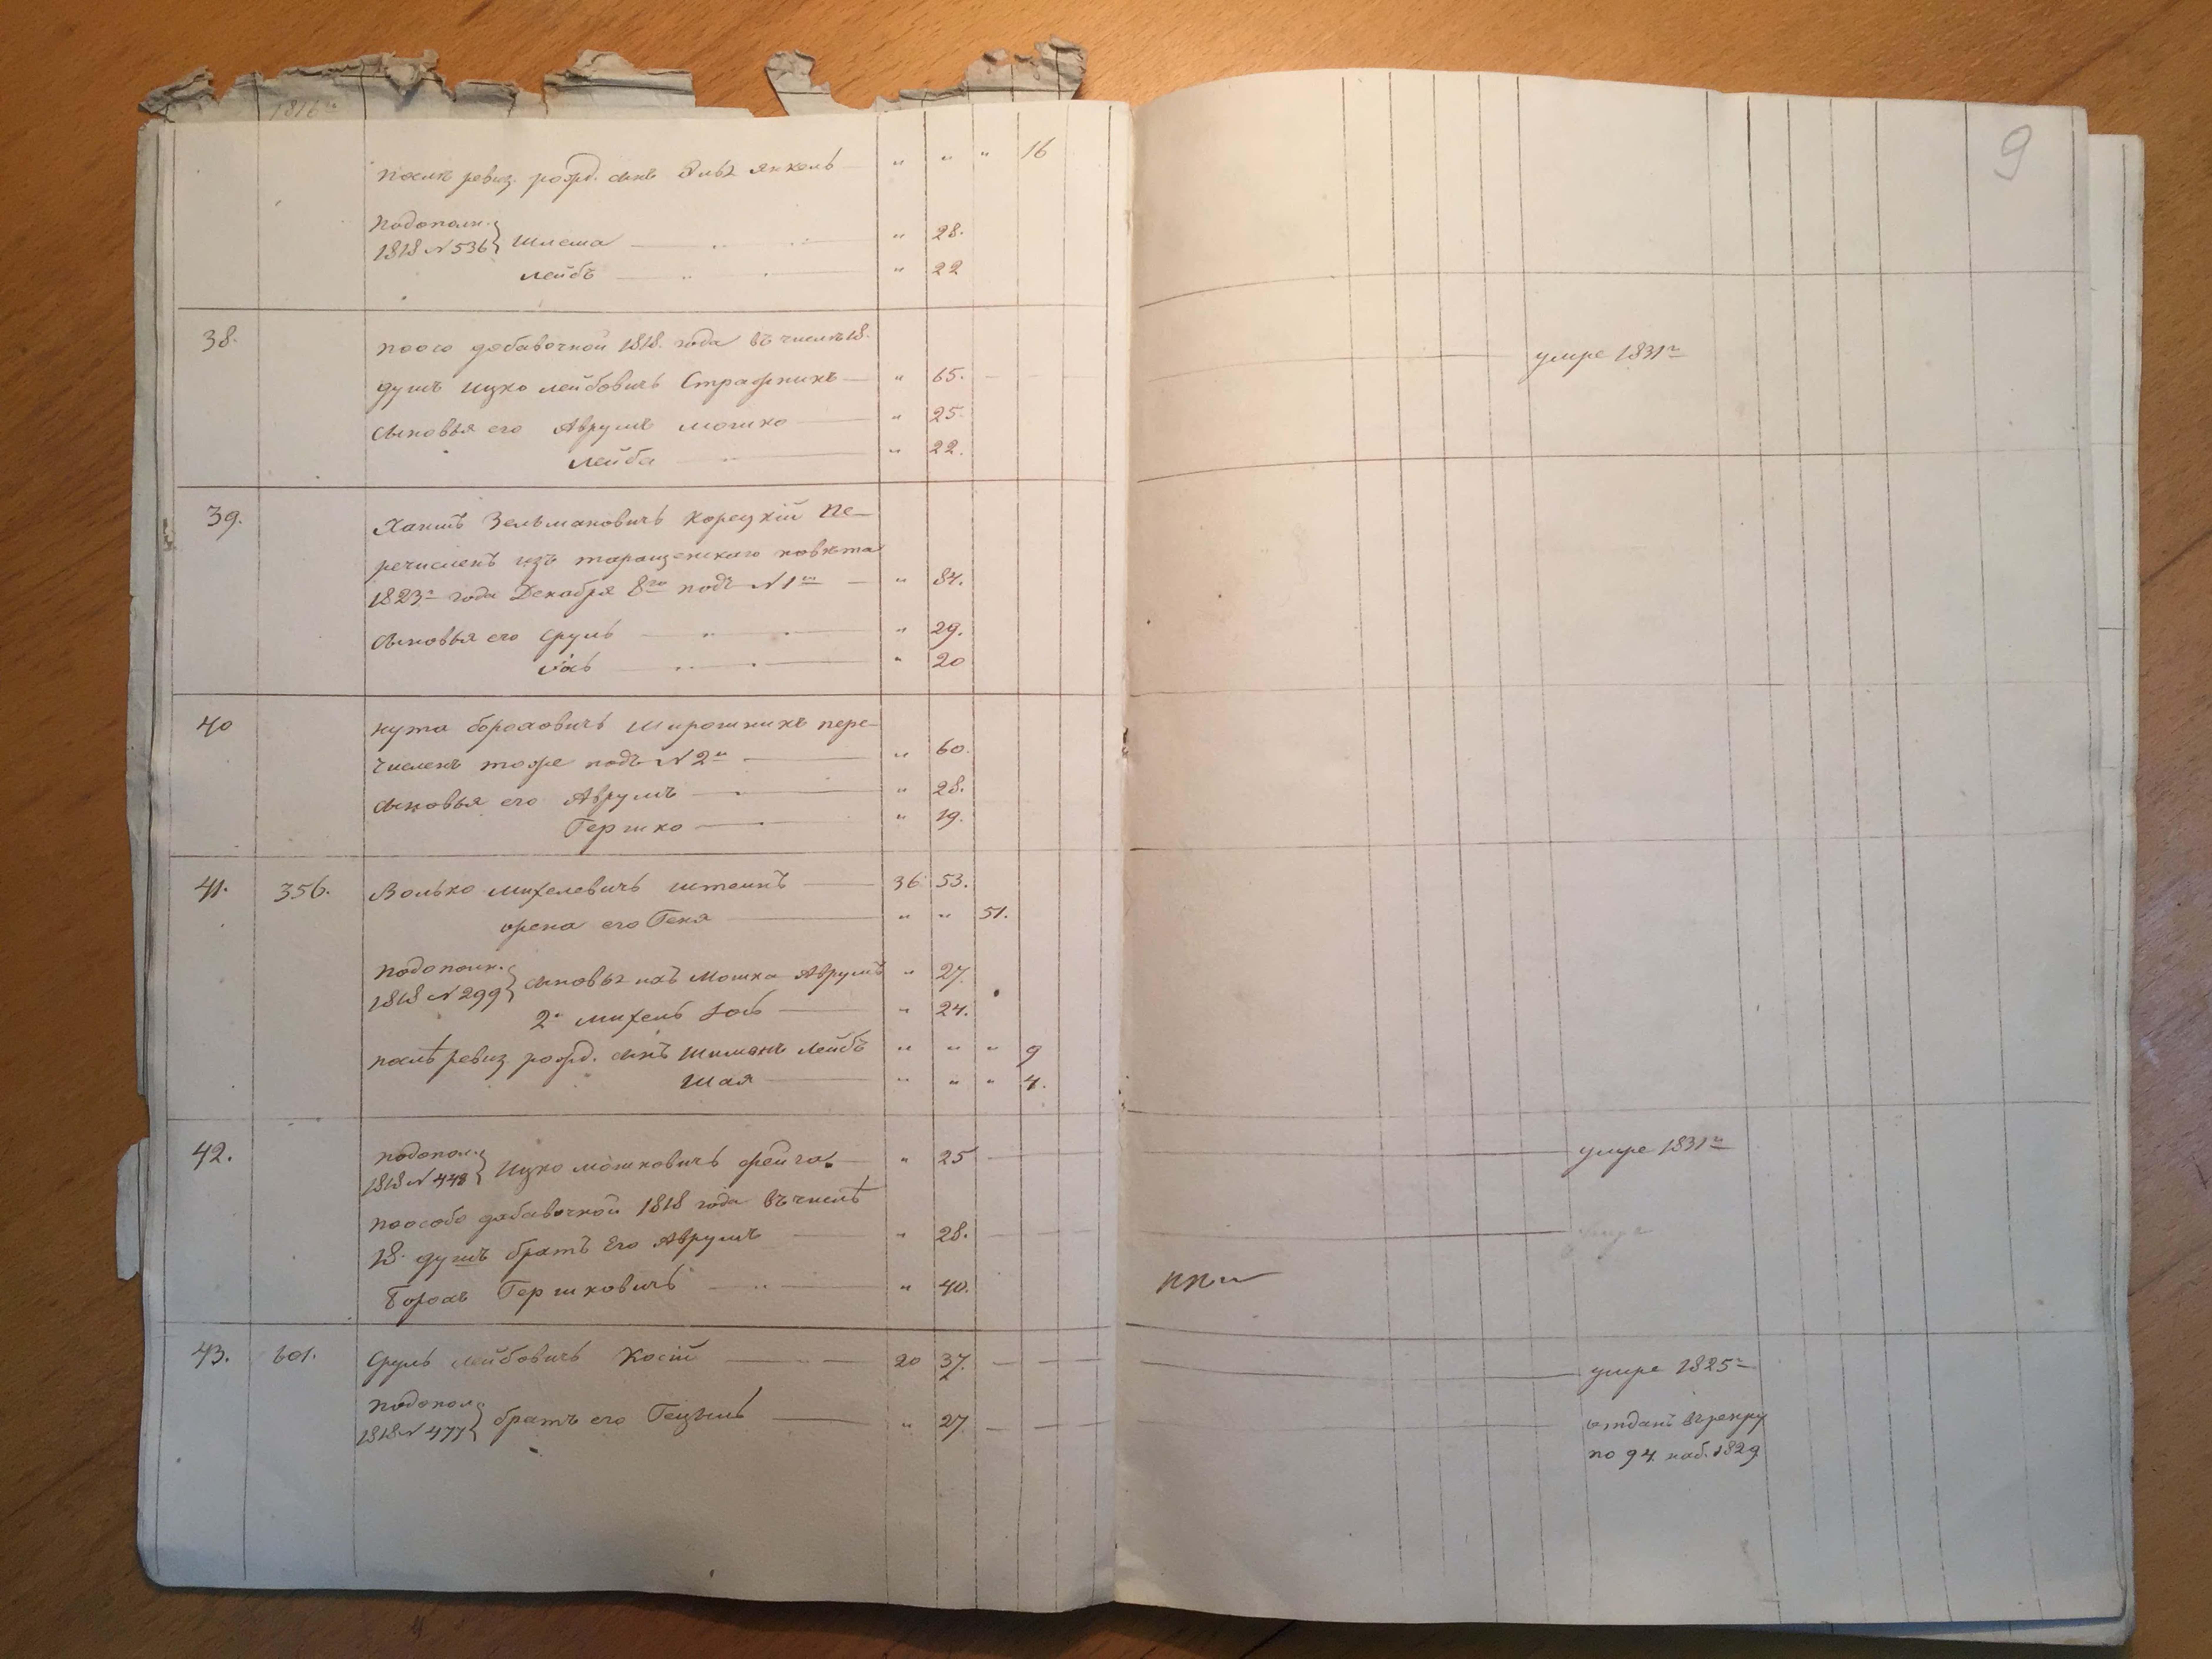 1816го
9
послѣ ревиз. рожд. сынъ Эль Янкель " " " 16
Подополн. 1818 N 536 } Шлема " 28.
Лейбъ " 22
38. по особо добавочной 1818. года въ числѣ 18.
душъ Ицко Лейбовичъ Стражникъ " 65. умре 1831г
сыновья его Аврумъ Мошко " 25.
Лейба " 22.
39. Зельмановичъ Корецкій Пе-
речисленъ изъ таращенскаго повѣта
1823г года Декабря 8го подъ N 1м " 84.
сыновья его Сруль " 29.
" 20
40 Нута Бороховичъ пере-
численъ тоже подъ N 2м " 60.
сыновья его Аврумъ " 28.
Гершко " 19.
41. 356. Волько Михелевичъ Штейнъ 36 53.
жена его Геня " " 51.
Подополн. 1818 N 299 } сыновья ихъ Мошка Аврумъ " 27.
2й Михель Іось " 24.
послѣ ревиз. рожд. сынъ Шимонъ Лейбъ " " " 9
Шая " " " 4.
42. Подопол. 1818 N 448 } Ицко Мошковичъ " 25 умре 1831г
по особо добавочной 1818 года въ числѣ
18. душъ братъ Его Аврумъ " 28.
Борохъ Гершковичъ " 40.
43. 601. Сруль Лейбовичъ Косій 20 37. умре 1825г
Подопол. 1818 N 477 } братъ его Гецель " 27 отданъ въ рекру
по 94. наб. 1829